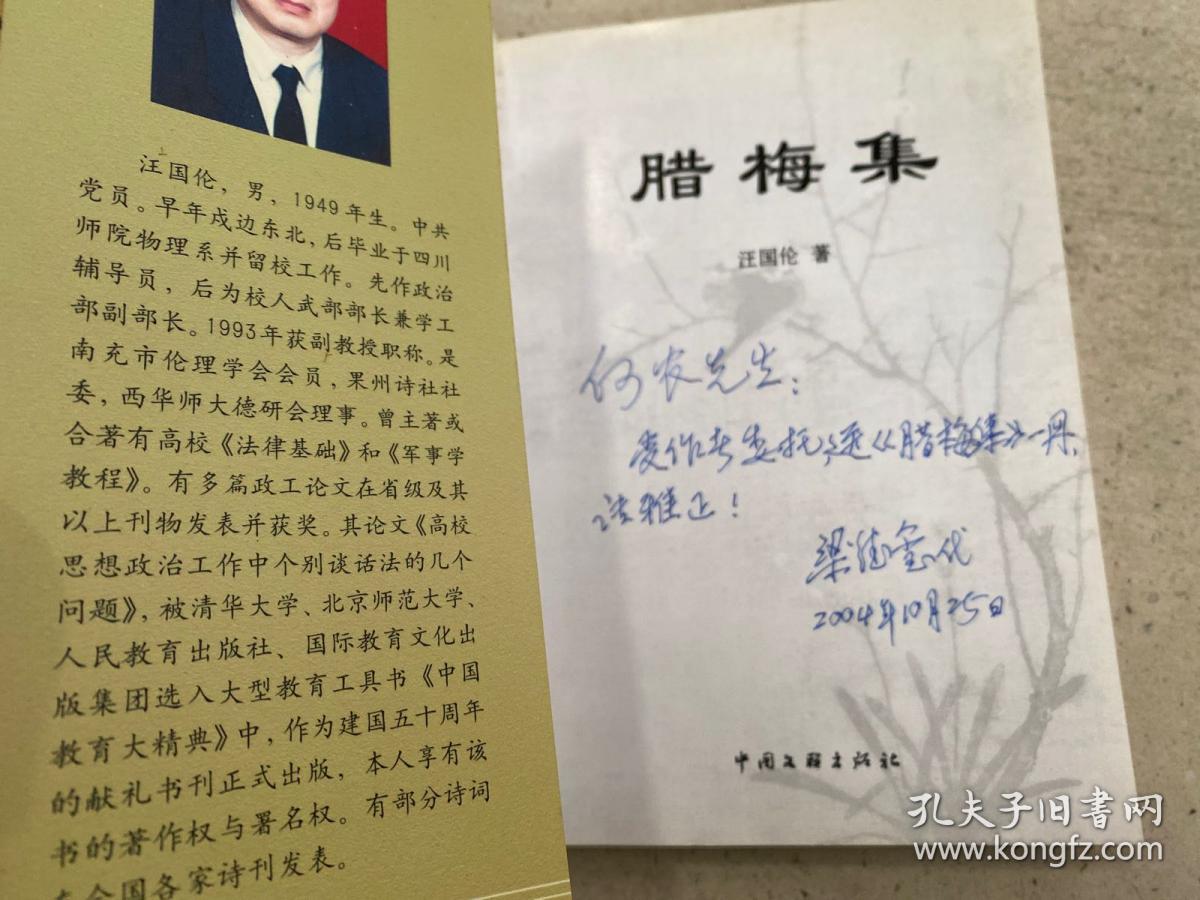 汪国伦，男，1949年生。中共
党员。早年戍边东北，后毕业于四川
师院物理系并留校工作。先作政治
辅导员，后为校人武部部长兼学工
部副部长。1993年获副教授职称。是
南充市伦理学会会员，果州诗社社
委，西华师大德研会理事。曾主著或
合著有高校《法律基础》和《军事学
教程》。有多篇政工论文在省级及其
以上刊物发表并获奖。其论文《高校
思想政治工作中个别谈话法的几个
问题》，被清华大学、北京师范大学、
人民教育出版社、国际教育文化出
版集团选入大型教育工具书《中国
教育大精典》中，作为建国五十周年
的献礼书刊正式出版，本人享有该
书的著作权与署名权。有部分诗词
在全国各家诗刊发表。
腊梅集
汪国伦 著
何农先生：
受作者委托，送《腊梅集》一册，
请雅正！
梁 代
2004年10月25日
中国文联出版社
孔夫子旧书网
www.kongfz.com